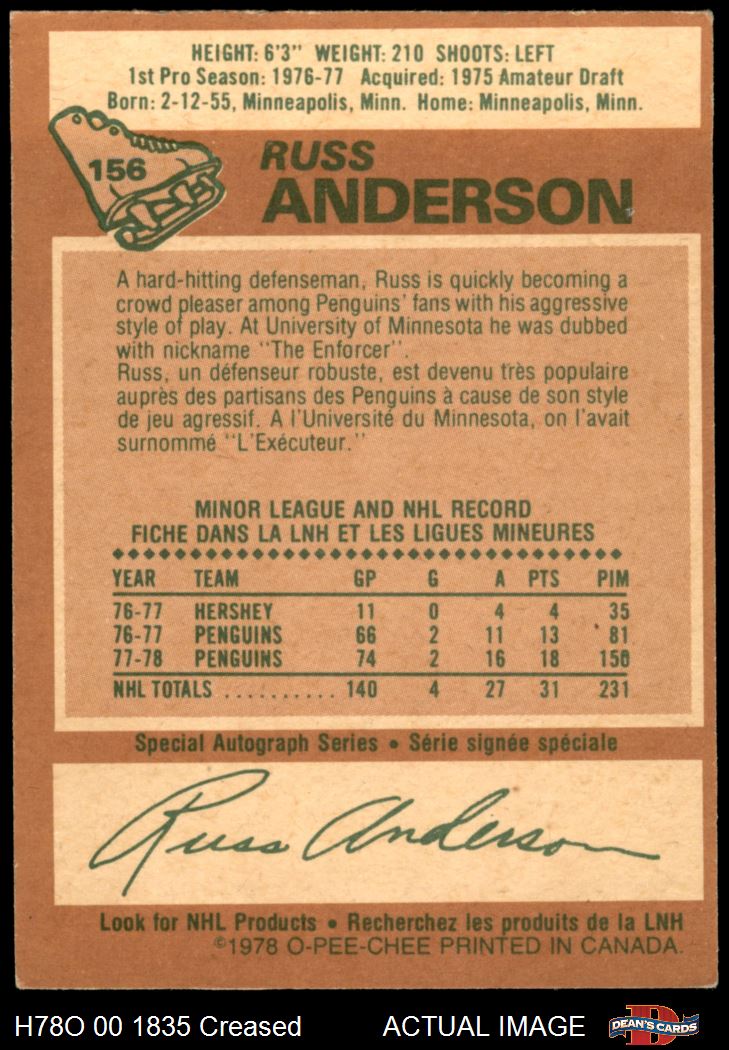 HEIGHT: 6'3" WEIGHT: 210 SHOOTS: LEFT
1st Pro Season: 1976-77 Acquired: 1975 Amateur Draft
Born: 2-12-55, Minneapolis, Minn. Home: Minneapolis, Minn.
156
RUSS
ANDERSON
A hard-hitting defenseman, Russ is quickly becoming a
crowd pleaser among Penguins' fans with his aggressive
style of play. At University of Minnesota he was dubbed
with nickname "The Enforcer".
Russ, un défenseur robuste, est devenu très populaire
auprès des partisans des Penguins à cause de son style
de jeu agressif. A l'Université du Minnesota, on l'avait
surnommé "L'Exécuteur."
MINOR LEAGUE AND NHL RECORD
FICHE DANS LA LNH ET LES LIGUES MINEURES
YEAR TEAM GP G A PTS PIM
76-77 HERSHEY 11 0 4 4 35
76-77 PENGUINS 66 2 11 13 81
77-78 PENGUINS 74 2 16 18 150
NHL TOTALS .......... 140 4 27 31 231
Special Autograph Series • Série signée spéciale
Russ Anderson
Look for NHL Products • Recherchez les produits de la LNH
©1978 O-PEE-CHEE PRINTED IN CANADA.
H78O 00 1835 Creased ACTUAL IMAGE D DEAN'S CARDS